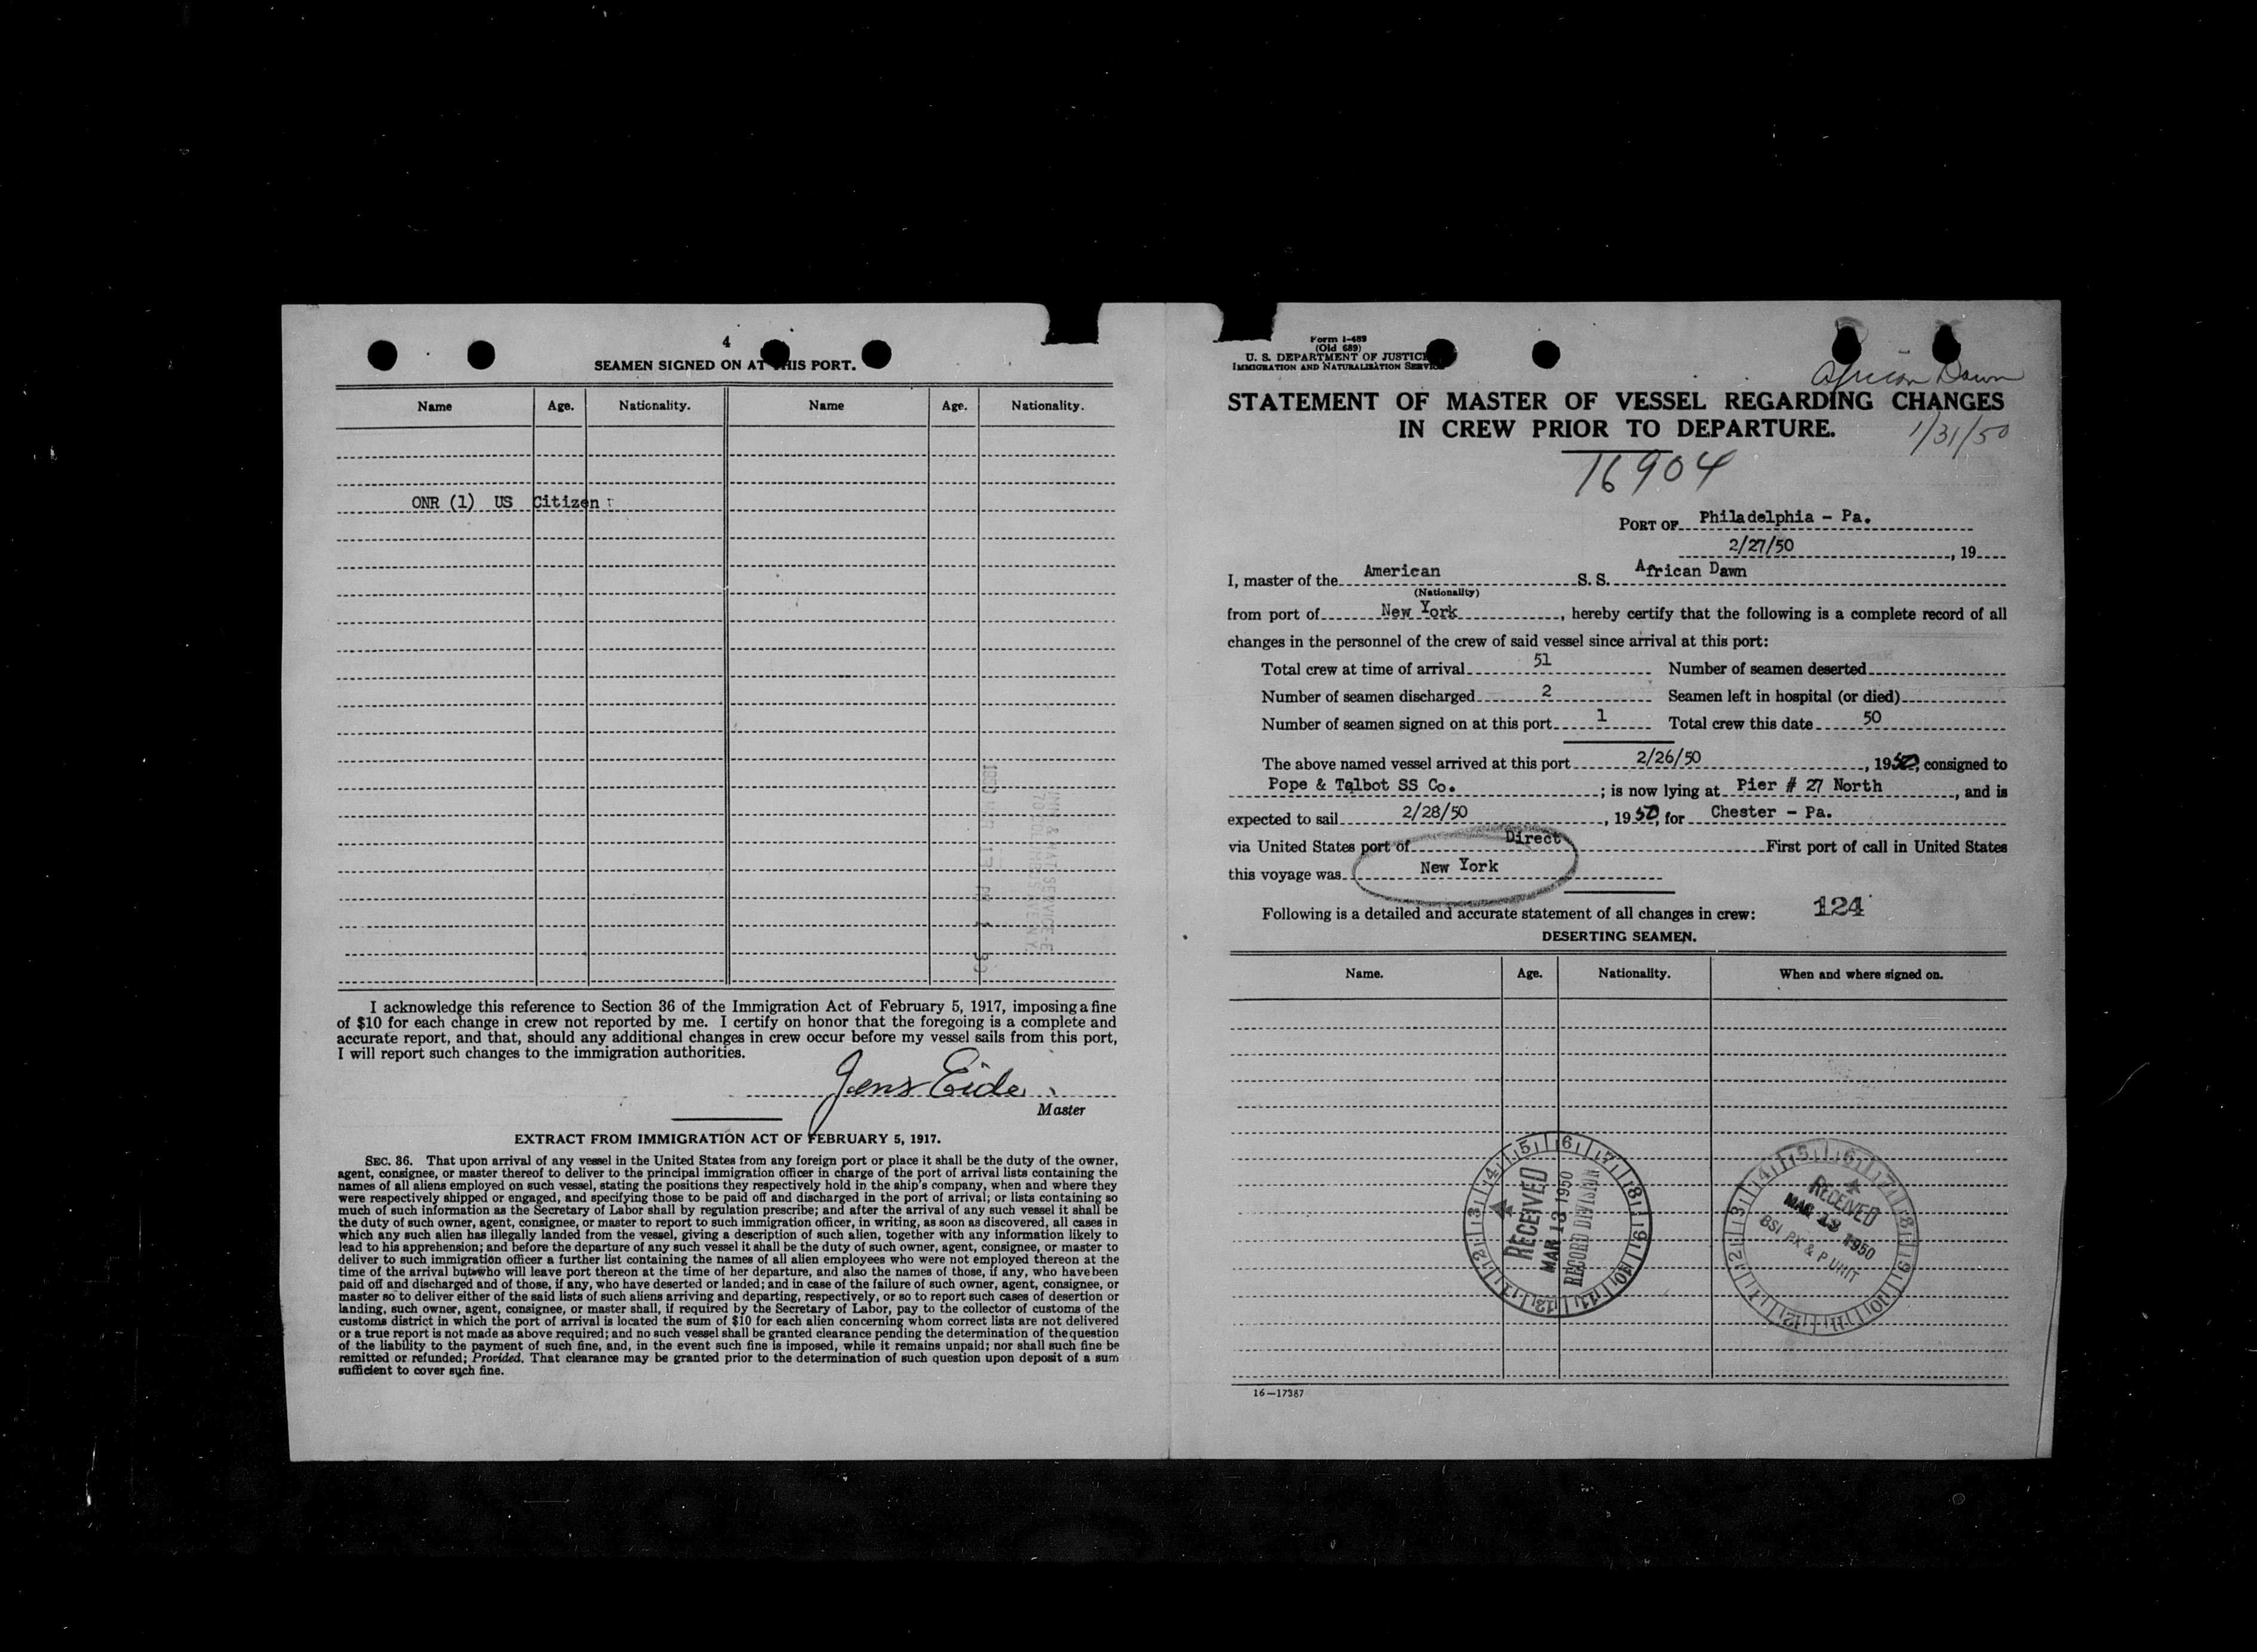 4
SEAMEN SIGNED ON AT THIS PORT.
Name Age. Nationality. Name Age. Nationality.
ONR (1) US Citizen
I acknowledge this reference to Section 36 of the Immigration Act of February 5, 1917, imposing a fine
of $10 for each change in crew not reported by me. I certify on honor that the foregoing is a complete and
accurate report, and that, should any additional changes in crew occur before my vessel sails from this port,
I will report such changes to the immigration authorities.
Jens Eide
Master
EXTRACT FROM IMMIGRATION ACT OF FEBRUARY 5, 1917.
SEC. 36. That upon arrival of any vessel in the United States from any foreign port or place it shall be the duty of the owner,
agent, consignee, or master thereof to deliver to the principal immigration officer in charge of the port of arrival lists containing the
names of all aliens employed on such vessel, stating the positions they respectively hold in the ship's company, when and where they
were respectively shipped or engaged, and specifying those to be paid off and discharged in the port of arrival; or lists containing so
much of such information as the Secretary of Labor shall by regulation prescribe; and after the arrival of any such vessel it shall be
the duty of such owner, agent, consignee, or master to report to such immigration officer, in writing, as soon as discovered, all cases in
which any such alien has illegally landed from the vessel, giving a description of such alien, together with any information likely to
lead to his apprehension; and before the departure of any such vessel it shall be the duty of such owner, agent, consignee, or master to
deliver to such immigration officer a further list containing the names of all alien employees who were not employed thereon at the
time of the arrival but who will leave port thereon at the time of her departure, and also the names of those, if any, who have been
paid off and discharged and of those, if any, who have deserted or landed; and in case of the failure of such owner, agent, consignee, or
master so to deliver either of the said lists of such aliens arriving and departing, respectively, or so to report such cases of desertion or
landing, such owner, agent, consignee, or master shall, if required by the Secretary of Labor, pay to the collector of customs of the
customs district in which the port of arrival is located the sum of $10 for each alien concerning whom correct lists are not delivered
or a true report is not made as above required; and no such vessel shall be granted clearance pending the determination of the question
of the liability to the payment of such fine, and, in the event such fine is imposed, while it remains unpaid; nor shall such fine be
remitted or refunded; Provided. That clearance may be granted prior to the determination of such question upon deposit of a sum
sufficient to cover such fine.
Form I-489
(Old 689)
U. S. DEPARTMENT OF JUSTICE
IMMIGRATION AND NATURALIZATION SERVICE
African Dawn
STATEMENT OF MASTER OF VESSEL REGARDING CHANGES
IN CREW PRIOR TO DEPARTURE.
1/31/50
16904
PORT OF Philadelphia - Pa.
2/27/50, 19
I, master of the American S. S. African Dawn
(Nationality)
from port of New York, hereby certify that the following is a complete record of all
changes in the personnel of the crew of said vessel since arrival at this port:
Total crew at time of arrival 51 Number of seamen deserted
Number of seamen discharged 2 Seamen left in hospital (or died)
Number of seamen signed on at this port 1 Total crew this date 50
The above named vessel arrived at this port 2/26/50, 1950, consigned to
Pope & Talbot SS Co.; is now lying at Pier # 27 North, and is
expected to sail 2/28/50, 1950, for Chester - Pa.
via United States port of Direct First port of call in United States
this voyage was New York
Following is a detailed and accurate statement of all changes in crew: 124
DESERTING SEAMEN.
Name. Age. Nationality. When and where signed on.
RECEIVED
MAR 13 1950
RECORD DIVISION
RECEIVED
MAR 13 1950
BSI PX & P UNIT
16—17387